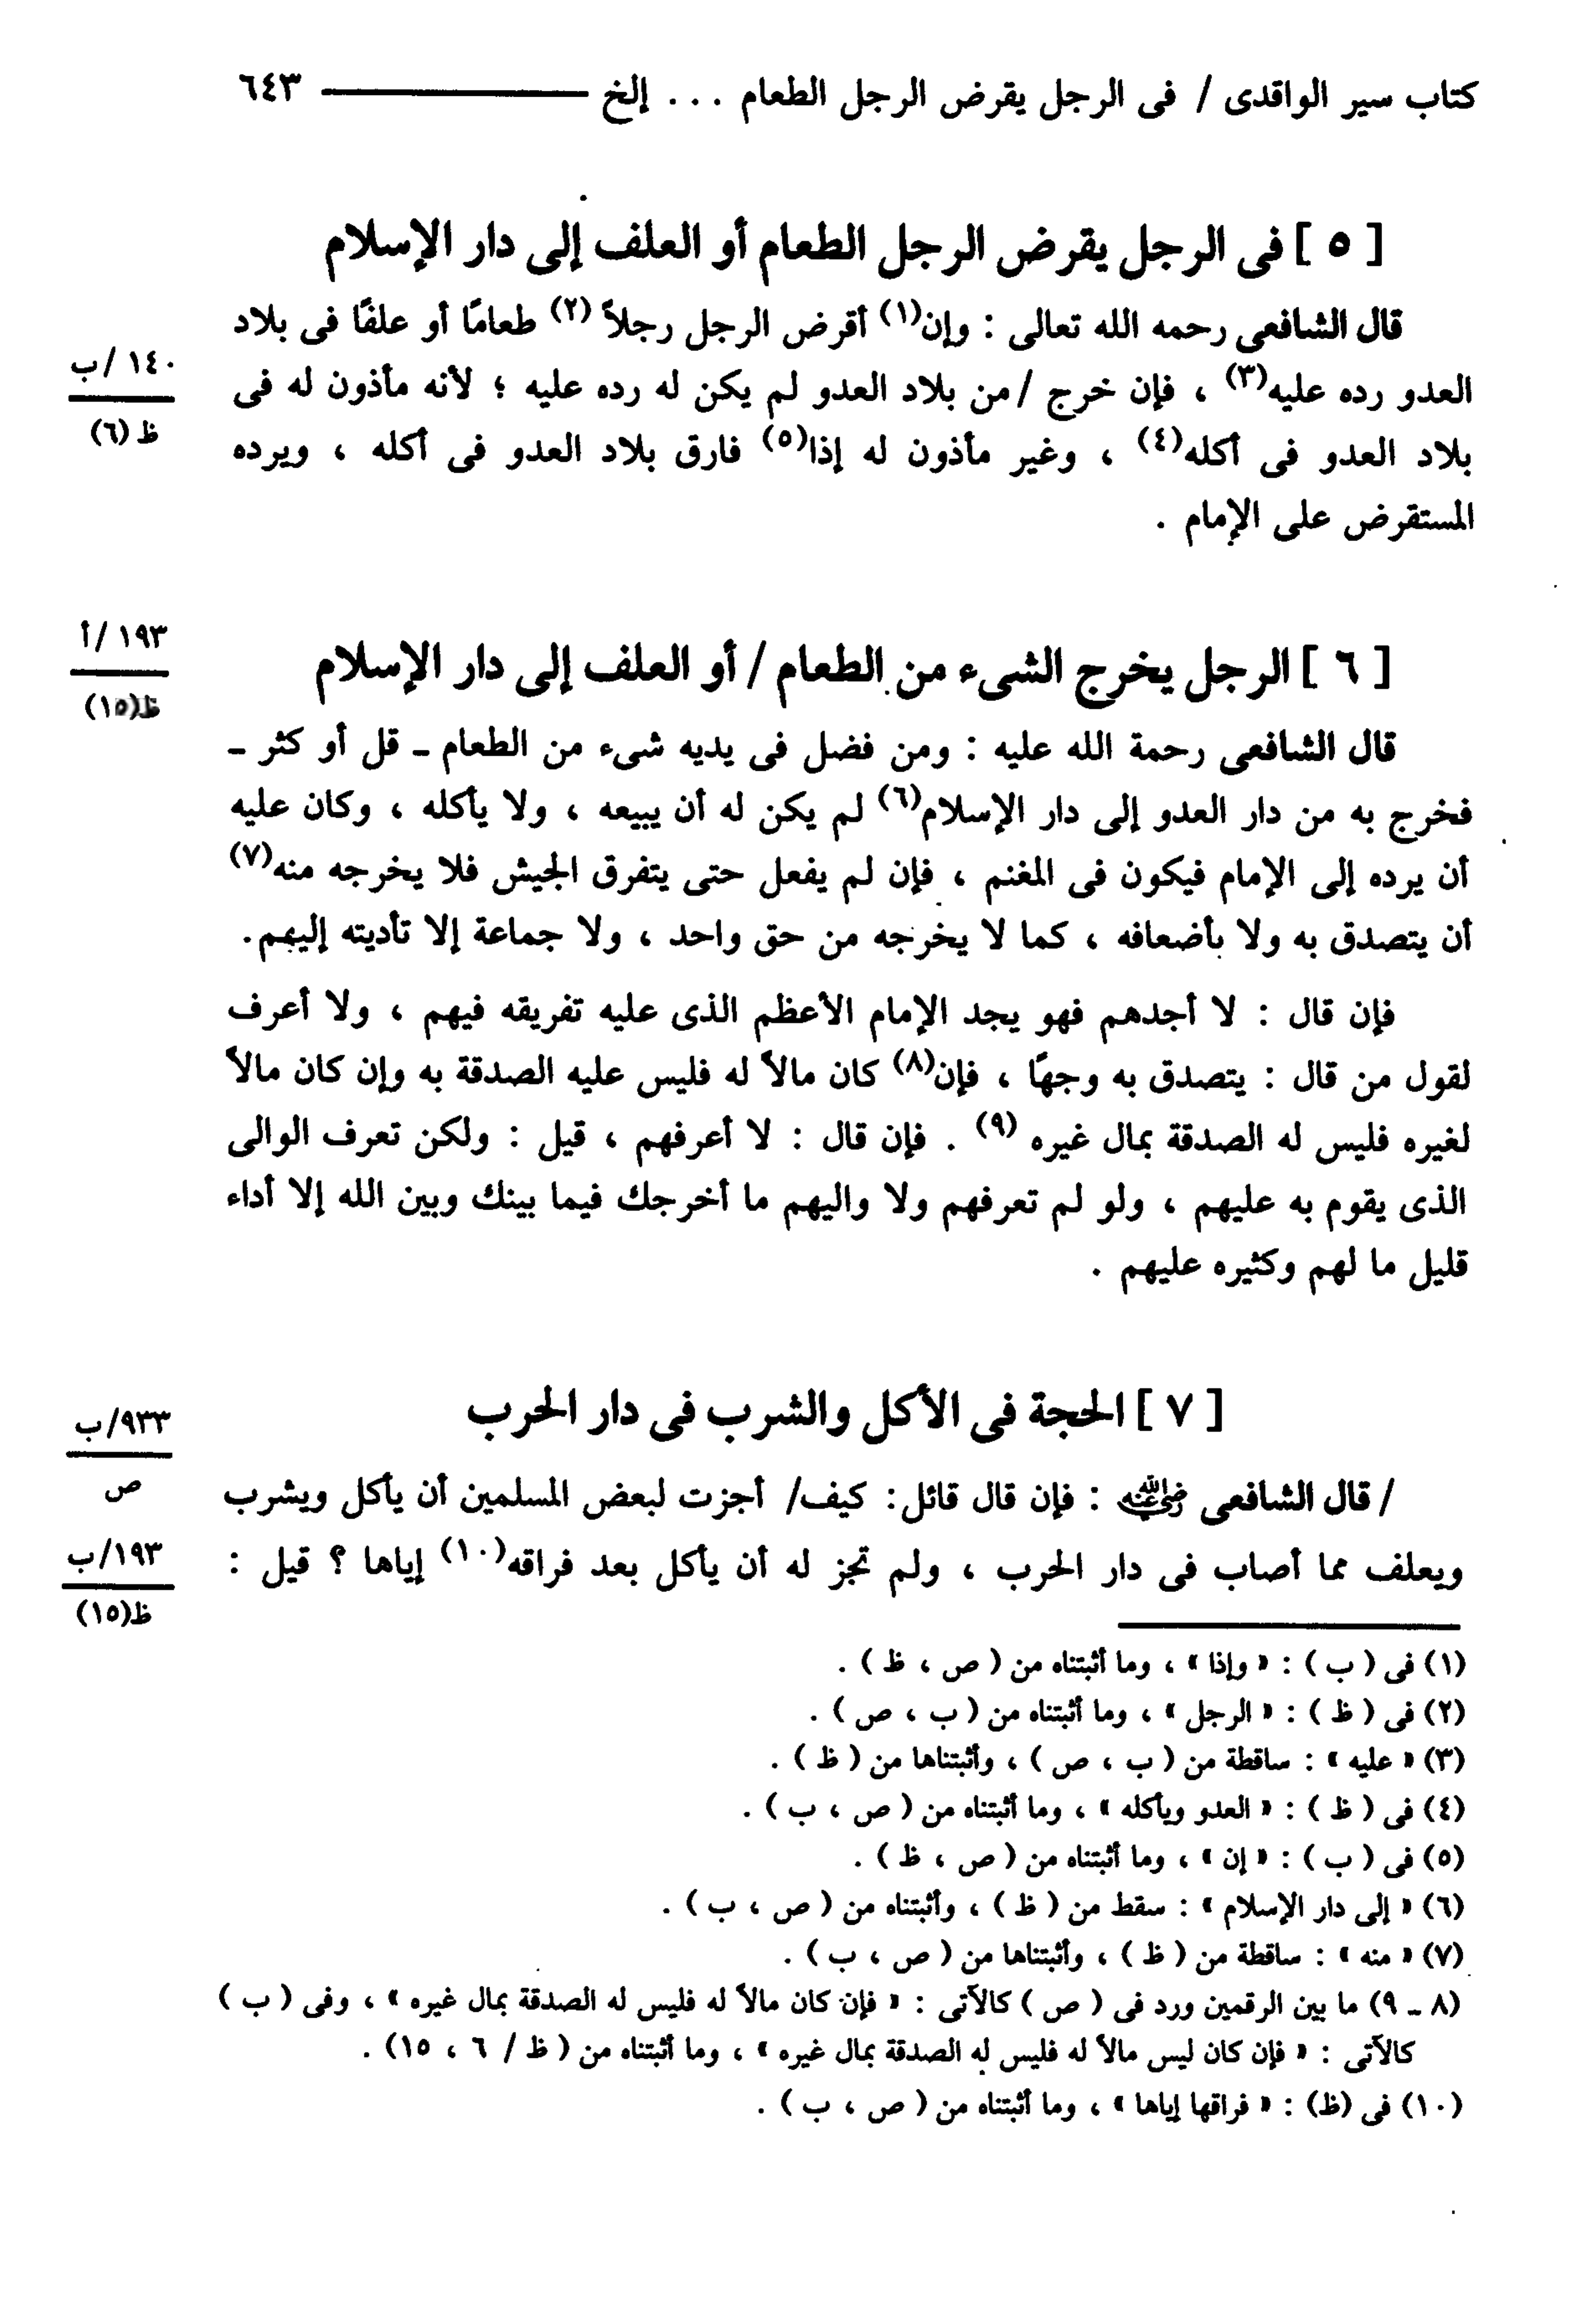 كتاب سير الواقدى / فى الرجل يقرض الرجل الطعام ... إلخ ٦٤٣
[ ٥ ] فى الرجل يقرض الرجل الطعام أو العلف إلى دار الإسلام
قال الشافعى رحمه الله تعالى : وإن(١) أقرض الرجل رجلاً (٢) طعامًا أو علفًا فى بلاد
العدو رده عليه(٣) ، فإن خرج / من بلاد العدو لم يكن له رده عليه ؛ لأنه مأذون له فى
١٤٠ /ب
ظ (٦)
بلاد العدو فى أكله(٤) ، وغير مأذون له إذا(٥) فارق بلاد العدو فى أكله ، ويرده
المستقرض على الإمام .
[ ٦ ] الرجل يخرج الشىء من الطعام / أو العلف إلى دار الإسلام
١٩٣ /أ
ظ(١٥)
قال الشافعى رحمة الله عليه : ومن فضل فى يديه شىء من الطعام ـ قل أو كثر ـ
فخرج به من دار العدو إلى دار الإسلام(٦) لم يكن له أن يبيعه ، ولا يأكله ، وكان عليه
أن يرده إلى الإمام فيكون فى المغنم ، فإن لم يفعل حتى يتفرق الجيش فلا يخرجه منه(٧)
أن يتصدق به ولا بأضعافه ، كما لا يخرجه من حق واحد ، ولا جماعة إلا تأديته إليهم.
فإن قال : لا أجدهم فهو يجد الإمام الأعظم الذى عليه تفريقه فيهم ، ولا أعرف
لقول من قال : يتصدق به وجهًا ، فإن(٨) كان مالاً له فليس عليه الصدقة به وإن كان مالاً
لغيره فليس له الصدقة بمال غيره (٩) . فإن قال : لا أعرفهم ، قيل : ولكن تعرف الوالى
الذى يقوم به عليهم ، ولو لم تعرفهم ولا واليهم ما أخرجك فيما بينك وبين الله إلا أداء
قليل ما لهم وكثيره عليهم .
[ ٧ ] الحجة فى الأكل والشرب فى دار الحرب
٩٣٣/ب
ص
/ قال الشافعى رضي الله عنه : فإن قال قائل: كيف/ أجزت لبعض المسلمين أن يأكل ويشرب
ويعلف مما أصاب فى دار الحرب ، ولم تجز له أن يأكل بعد فراقه(١٠) إياها ؟ قيل :
١٩٣/ب
ظ(١٥)
(١) فى ( ب ) : « وإذا » ، وما أثبتناه من ( ص ، ظ ) .
(٢) فى ( ظ ) : « الرجل » ، وما أثبتناه من ( ب ، ص ) .
(٣) « عليه » : ساقطة من ( ب ، ص ) ، وأثبتناها من ( ظ ) .
(٤) فى ( ظ ) : « العدو ويأكله » ، وما أثبتناه من ( ص ، ب ) .
(٥) فى ( ب ) : « إن » ، وما أثبتناه من ( ص ، ظ ) .
(٦) « إلى دار الإسلام » : سقط من ( ظ ) ، وأثبتناه من ( ص ، ب ) .
(٧) « منه » : ساقطة من ( ظ ) ، وأثبتناها من ( ص ، ب ) .
(٨ ـ ٩) ما بين الرقمين ورد فى ( ص ) كالآتى : « فإن كان مالاً له فليس له الصدقة بمال غيره » ، وفى ( ب )
كالآتى : « فإن كان ليس مالاً له فليس له الصدقة بمال غيره » ، وما أثبتناه من ( ظ / ٦ ، ١٥) .
(١٠) فى (ظ) : « فراقها إياها » ، وما أثبتناه من ( ص ، ب ) .